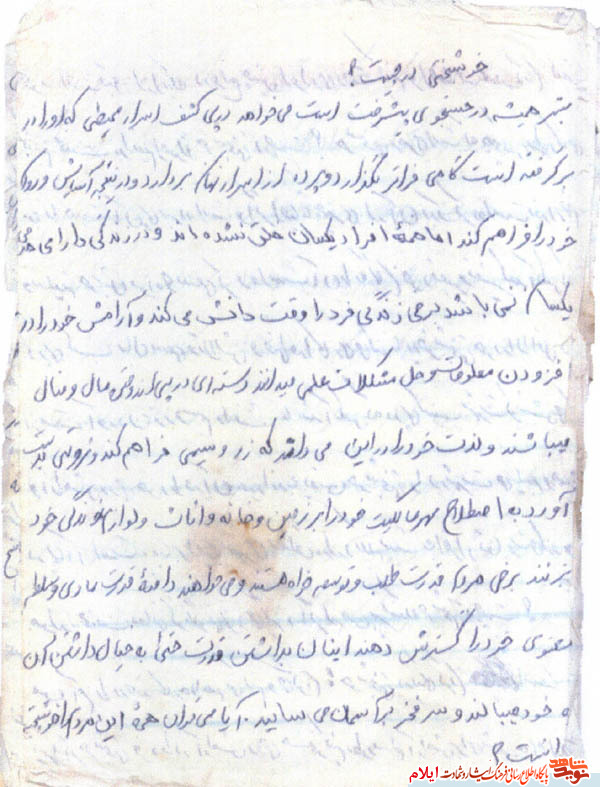 خوشبختی در چیست؟
بشر همیشه در جستجوی پیشرفت است می‌خواهد در پی کشف اسرار محیطی که او را در
بر گرفته است گامی فراتر بگذارد و پرده از اسرار نهان بردارد و در نتیجه آسایش
خود را فراهم کند اما همهٔ افراد یکسان خلق نشده اند و در زندگی دارای
یکسان نمی باشند برخی زندگی خود را وقت دانش می کند و آرامش خود را در
افزودن معلومات و حل مشکلات علمی میدانند دسته ای در پی اندوختن مال و منال
میباشند و لذت خود را در این می دانند که زر و سیمی فراهم کند و ثروتی بدست
آورد به اصطلاح مهر مالکیت خود را بر زمین و خانه و اثاث و لوازم زندگی خود
بزنند برخی مردم قدرت طلب و توسعه خواه هستند و می خواهند دامنهٔ قدرت مادی و تسلط
معنوی خود را گسترش دهند اینان بداشتن قدرت حتی به خیال داشتن آن
به خود میبالند و سر فخر بر آسمان می سایند. آیا می توان همهٔ این مردم را خوشبخت
دانست؟
نوید شاهد پایگاه اطلاع رسانی فرهنگ ایثار و شهادت ایلام